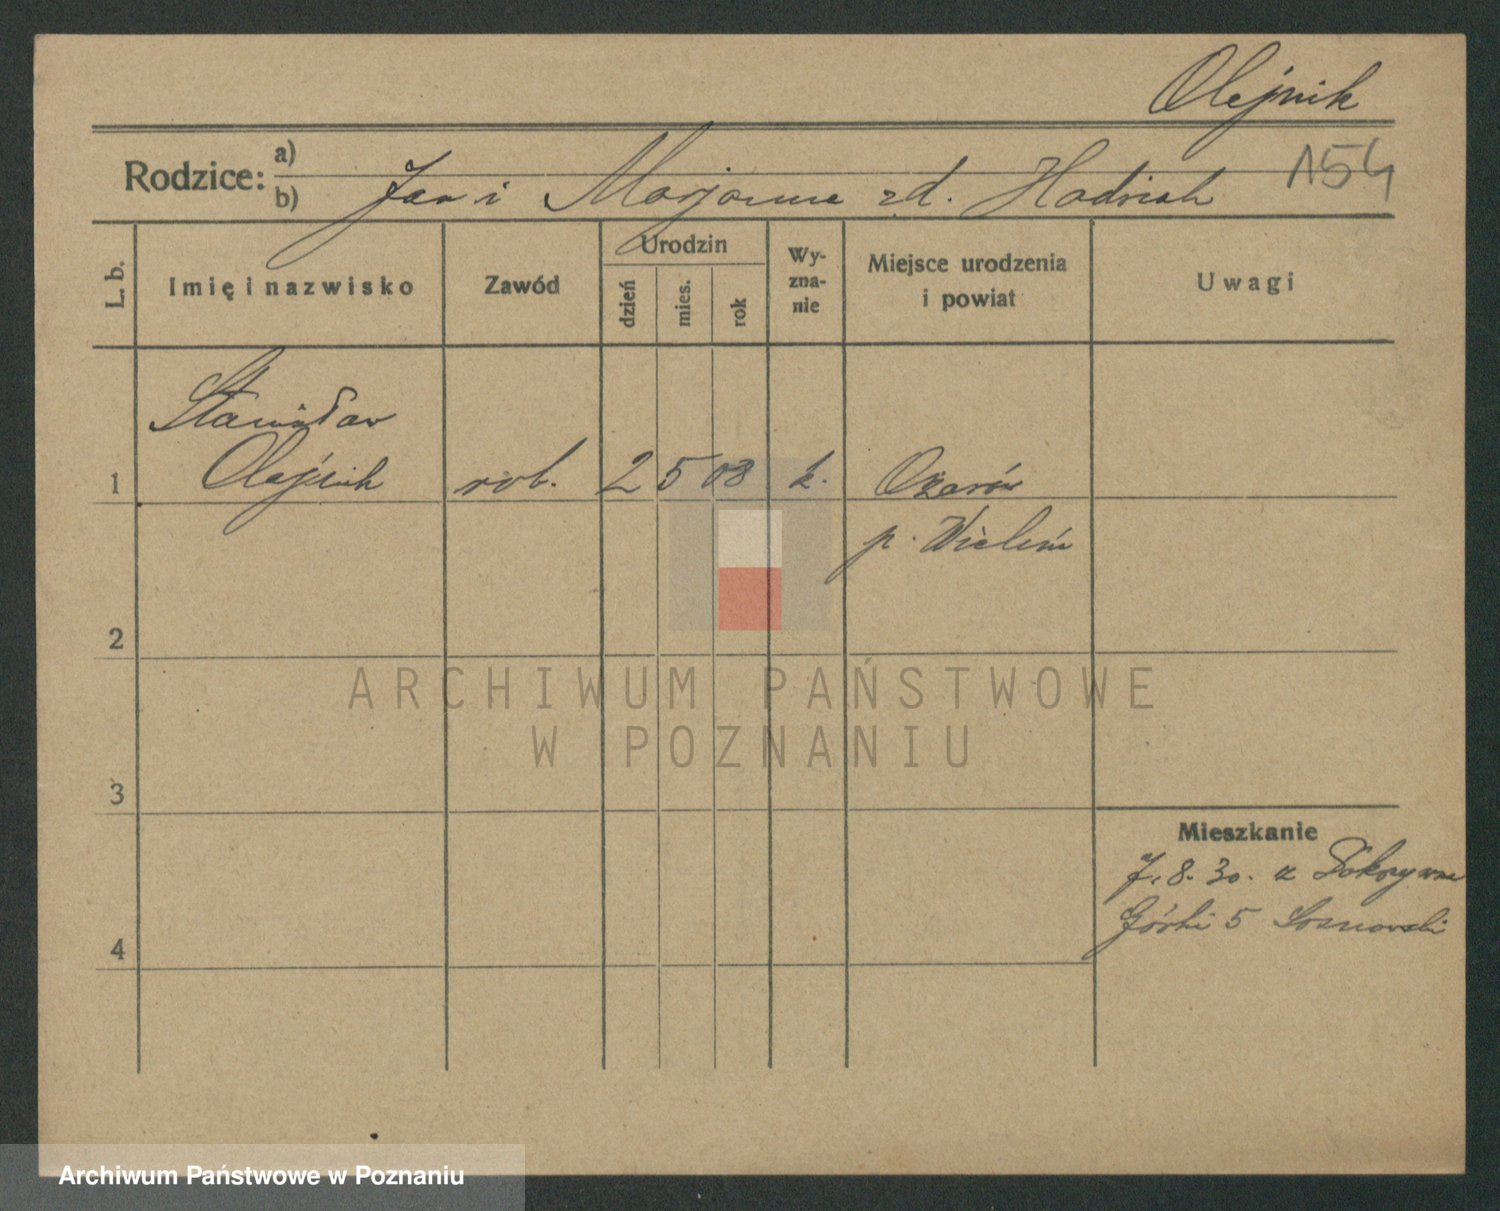 Olejnik
154
Rodzice: a)
b) Jan i Marjanna zd.
L. b.
Imię i nazwisko
Zawód
Urodzin
dzień
mies.
rok
Wy-
zna-
nie
Miejsce urodzenia
i powiat
Uwagi
Stanisław
1 Olejnik rob. 2 5 08 k. Ożarów
p. Wieluń
2
3
4
Mieszkanie
7.8.30. z
Górki 5 Sosnowski
ARCHIWUM PAŃSTWOWE
W POZNANIU
Archiwum Państwowe w Poznaniu